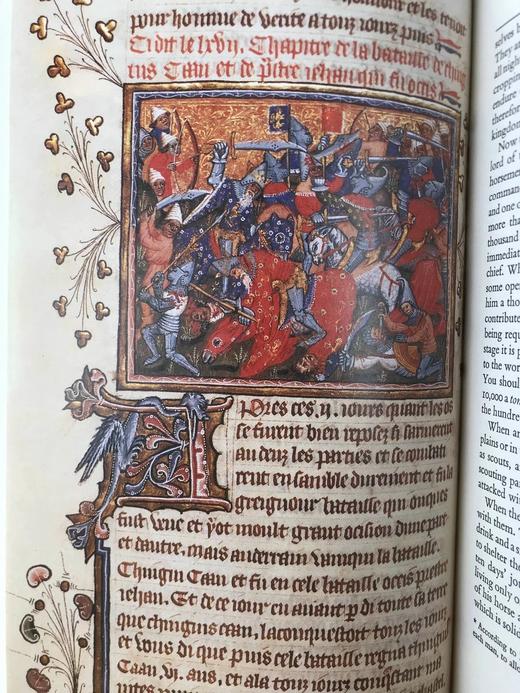 pour homme de verite a touz iourz puis
Ci dit le lxvii. Chapitre de la bataille de ching
uis Caan et de p̄stre iehan qui fu occis
Apres ces .ii. iours quant les os
se furent bien reposez si sarmerent
au deuz les parties et se combati
rent ensamble durement et fu la
greigniour bataille qui onques
fust veue et y ot moult grant ocision dune part
et dautre. mais au derrain vainqui la bataille.
Chingin Caan et fu en cele bataille occis prestre
iehan. Et de ce iour en auant p di toute sa terre
que chinguis caan, la conquestoit touz les iours
vous di que puis cele bataille regna chinguis
Caan .vi. ans, et ala touz iours conquestant ma
selves b
They ar
all nigh
croppin
endure
therefor
kingdom
Now
lord of
horsemen
and one o
more tha
thousand
immediat
chief. Wh
some oper
him a tho
contribute
being requ
stage it is p
to the wor
You shoul
10,000 a tom
the hundre
When an
plains or in
as scouts, a
scouting pa
attacked wit
When the
with them.
drink and a s
to shelter the
ten days' jo
living only o
of his horse a
which is solic
* According to
each man, to allo